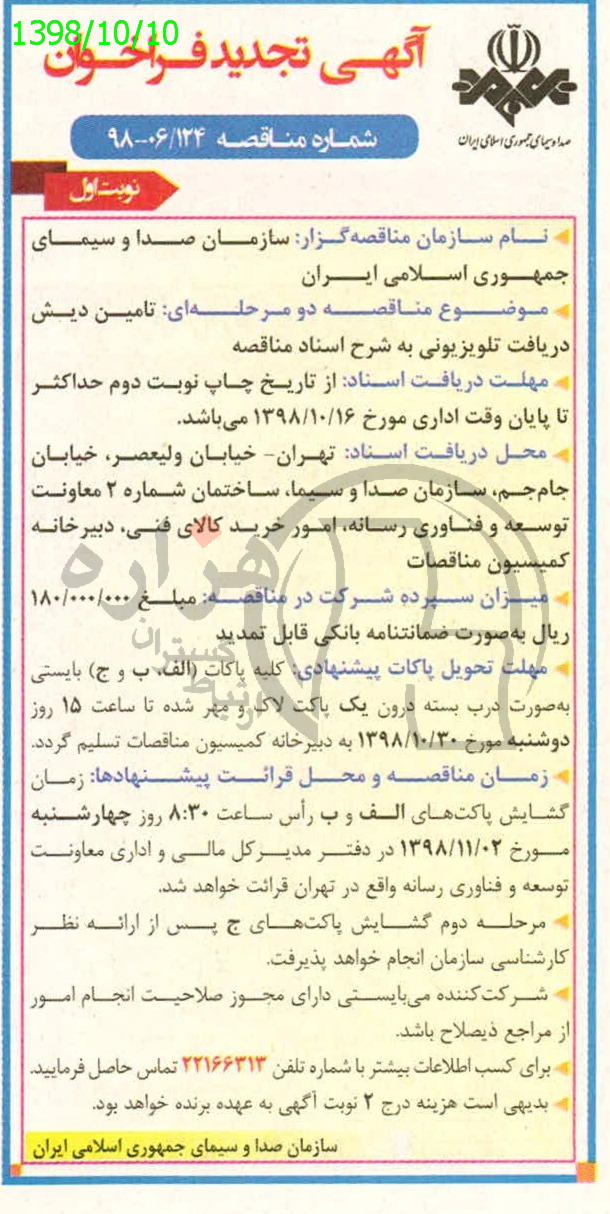 1398/10/10
آگهی تجدید فراخوان
صدا و سیمای جمهوری اسلامی ایران
شماره مناقصه ۹۸-۰۶/۱۲۴
نوبت اول
نام سازمان مناقصه‌گزار: سازمان صدا و سیمای
جمهوری اسلامی ایران
موضوع مناقصه دو مرحله‌ای: تامین دیش
دریافت تلویزیونی به شرح اسناد مناقصه
مهلت دریافت اسناد: از تاریخ چاپ نوبت دوم حداکثر
تا پایان وقت اداری مورخ ۱۳۹۸/۱۰/۱۶ می‌باشد.
محل دریافت اسناد: تهران- خیابان ولیعصر، خیابان
جام‌جم، سازمان صدا و سیما، ساختمان شماره ۲ معاونت
توسعه و فناوری رسانه، امور خرید کالای فنی، دبیرخانه
کمیسیون مناقصات
میزان سپرده شرکت در مناقصه: مبلغ ۱۸۰/۰۰۰/۰۰۰
ریال به‌صورت ضمانتنامه بانکی قابل تمدید
مهلت تحویل پاکات پیشنهادی: کلیه پاکات (الف، ب و ج) بایستی
به‌صورت درب بسته درون یک پاکت لاک و مهر شده تا ساعت ۱۵ روز
دوشنبه مورخ ۱۳۹۸/۱۰/۳۰ به دبیرخانه کمیسیون مناقصات تسلیم گردد.
زمان مناقصه و محل قرائت پیشنهادها: زمان
گشایش پاکت‌های الف و ب رأس ساعت ۸:۳۰ روز چهارشنبه
مورخ ۱۳۹۸/۱۱/۰۲ در دفتر مدیرکل مالی و اداری معاونت
توسعه و فناوری رسانه واقع در تهران قرائت خواهد شد.
مرحله دوم گشایش پاکت‌های ج پس از ارائه نظر
کارشناسی سازمان انجام خواهد پذیرفت.
شرکت‌کننده می‌بایستی دارای مجوز صلاحیت انجام امور
از مراجع ذیصلاح باشد.
برای کسب اطلاعات بیشتر با شماره تلفن ۲۲۱۶۶۳۱۳ تماس حاصل فرمایید.
بدیهی است هزینه درج ۲ نوبت آگهی به عهده برنده خواهد بود.
سازمان صدا و سیمای جمهوری اسلامی ایران
هزاره
گستران
ارتباط